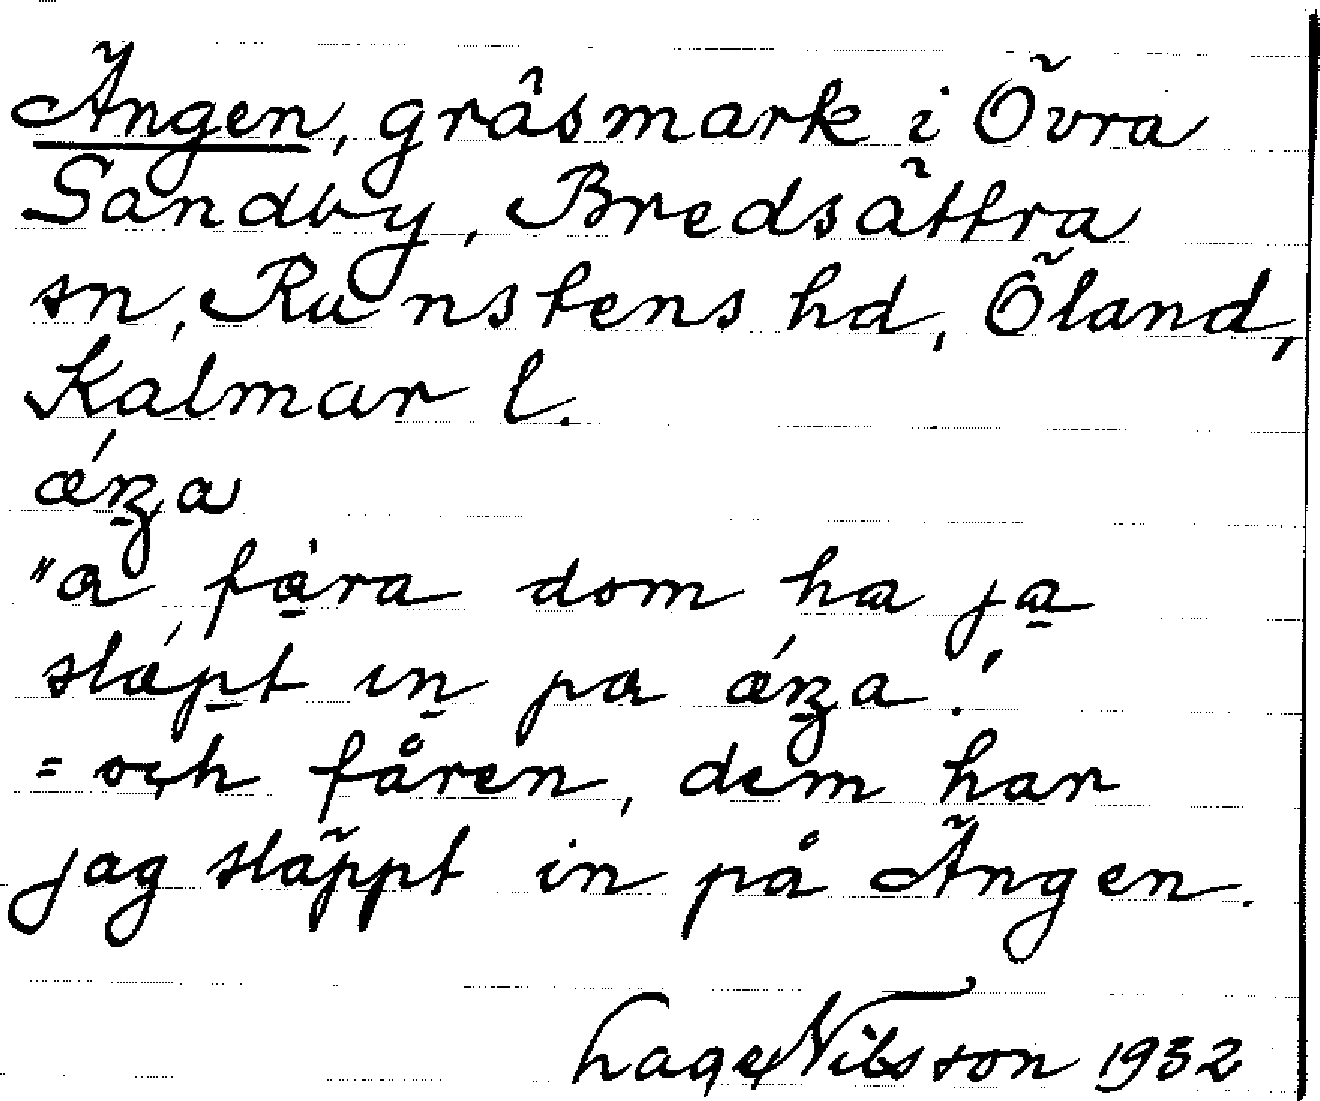 Ängen, gräsmark i Övra
Sandby, Bredsättra
sn, Runstens hd, Öland,
Kalmar l.
"a
dom ha ja
släpt in pa
= och fåren, dem har
jag släppt in på Ängen.
Lage Nilsson 1932